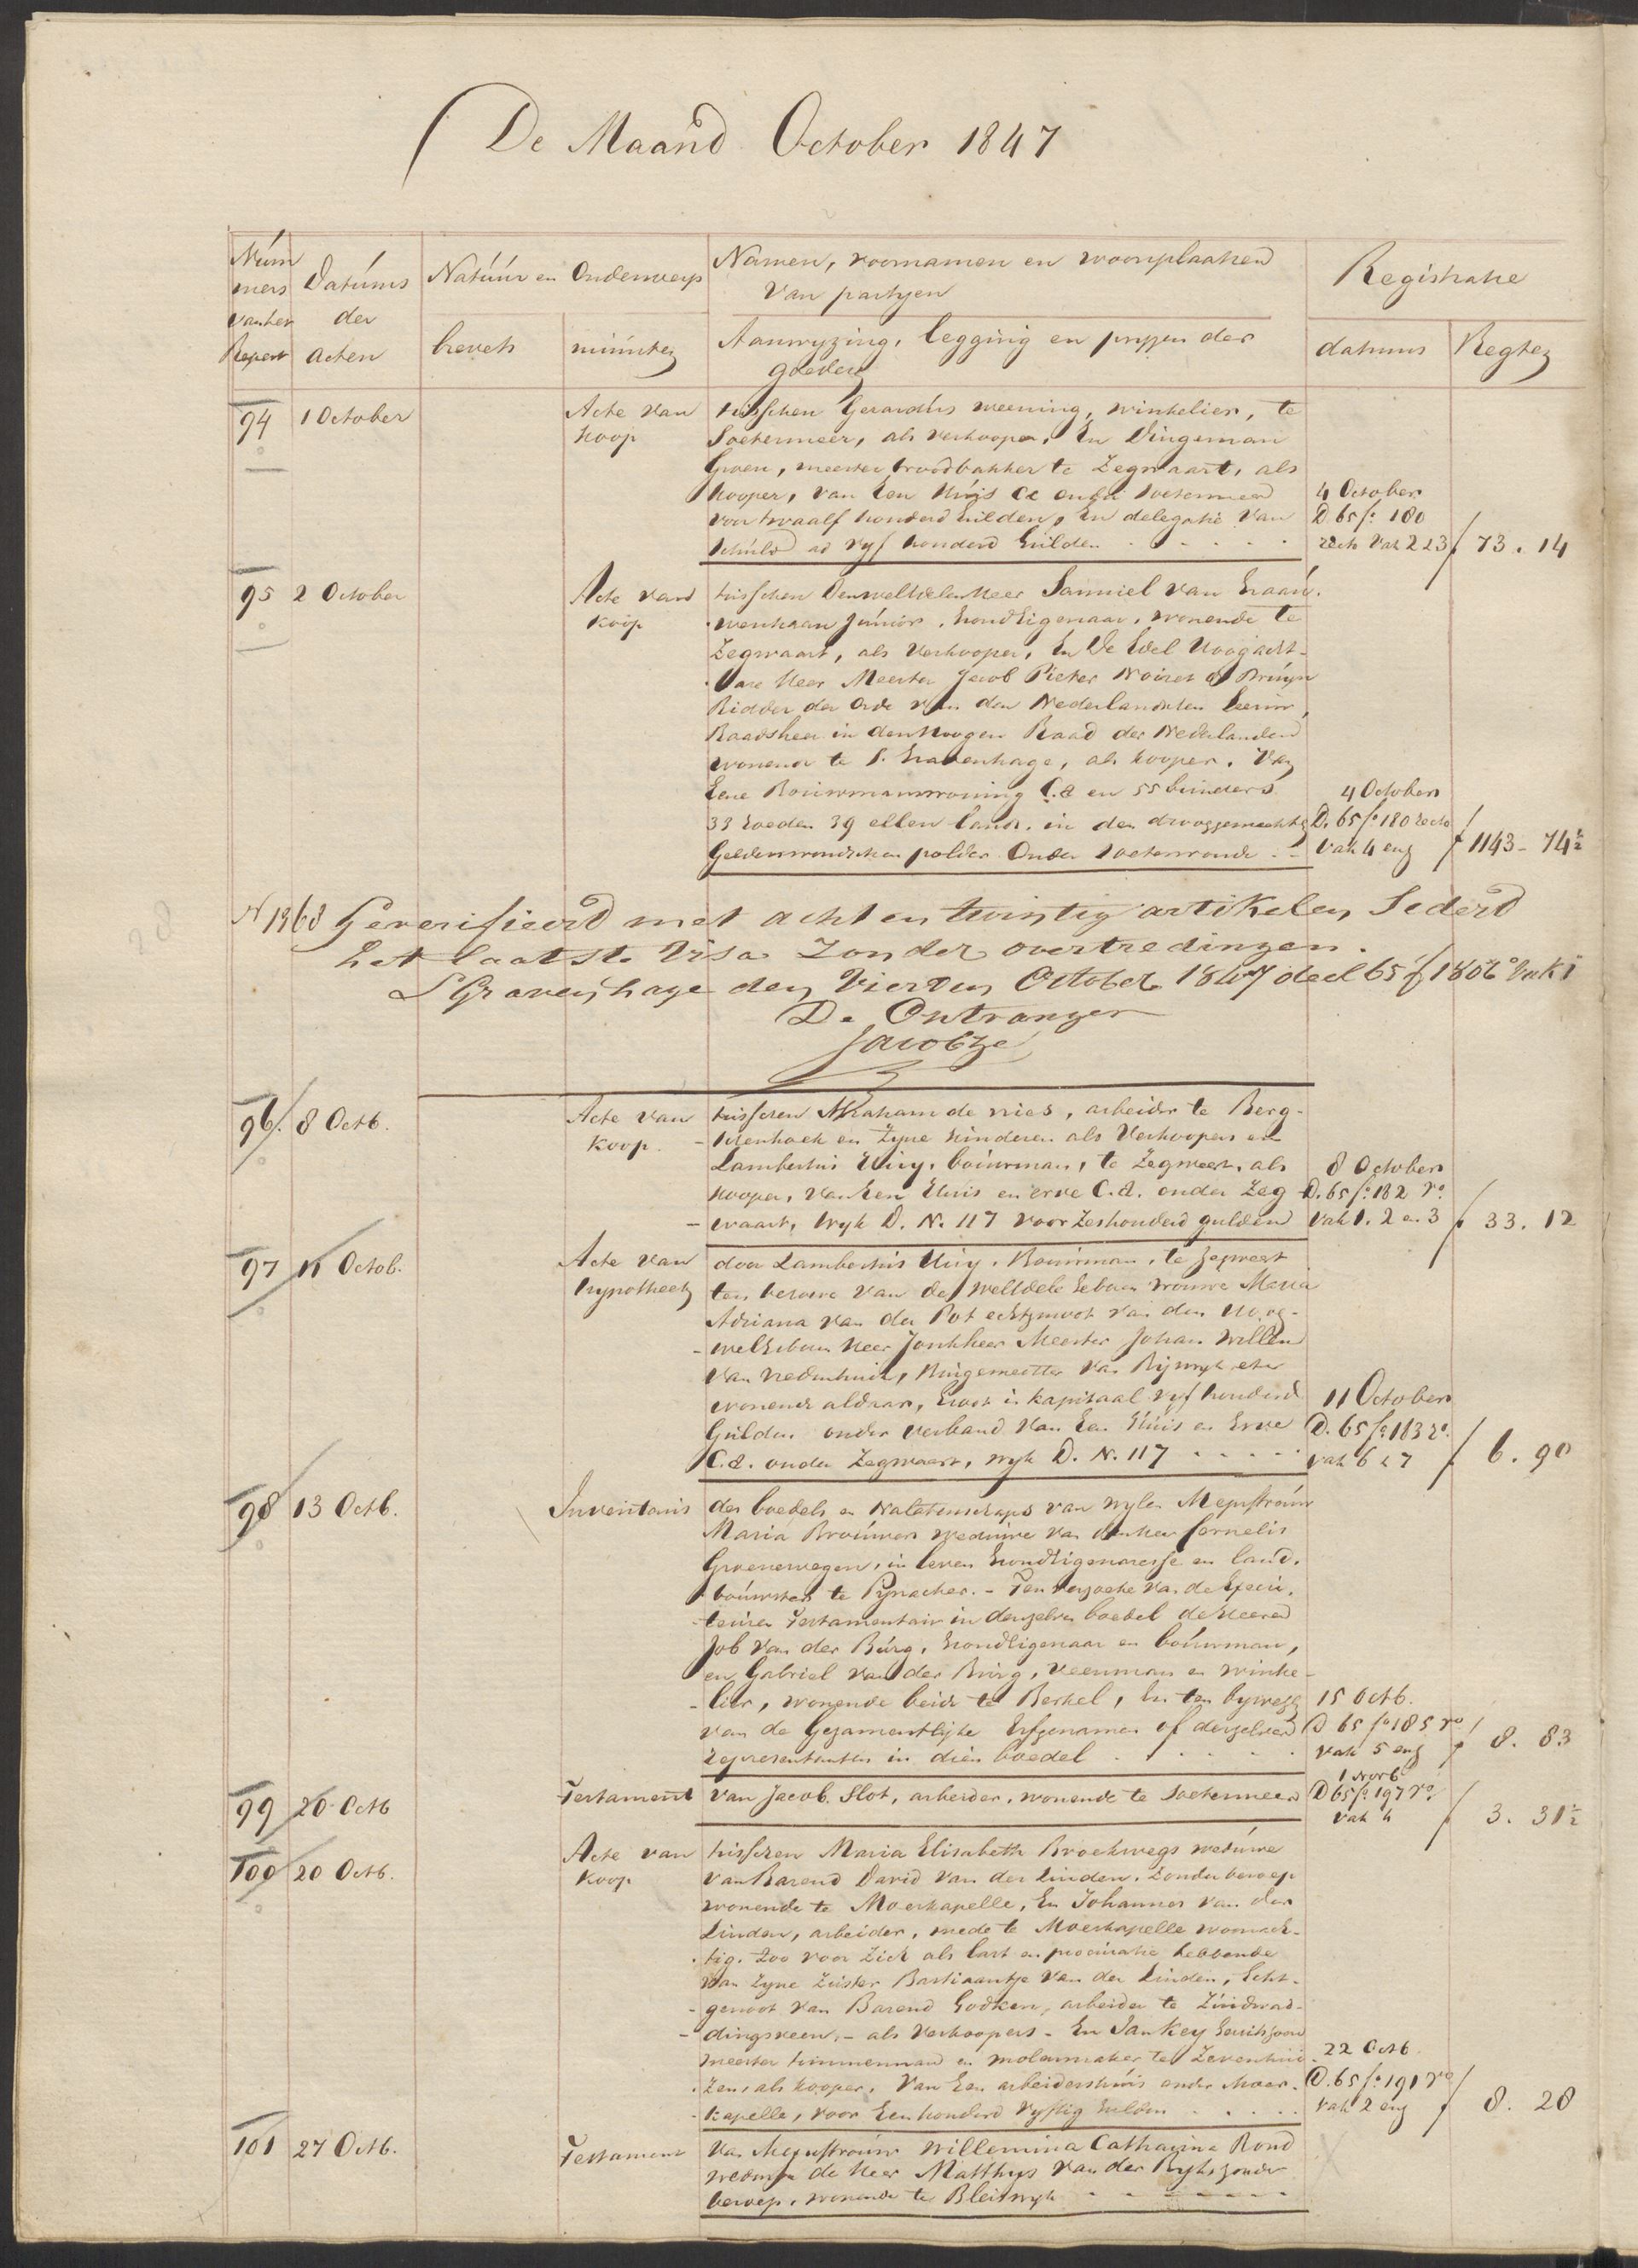 De Maand October 1847
Núm
mers
van het
Repert
Datúms
der
acten
Natúúr en Onderwerp
brevets
minúten
Namen, voornamen en woonplaatsen
van partyen
Aanwyzing, legging en pryzen der
goederen
Registratie
datums
Regten
94
1 October
Acte van
koop
tusschen Gerardus weening, winkelier, te
Soetermeer, als verkooper, En Dingeman
Groen, meester broodbakker te Zegwaart, als
kooper, van Een Húis &c onder Soetermeer
voor twaalf honderd Gulden, En delegatie van
Schúld ad vyf honderd Gulden
4 October
D 65 fo 180
recto vak 2 & 3
f 73. 14
95
2 October
Acte van
koop
tusschen Den welEdelen Heer Samuel van
Júnior, GrondEigenaar, wonende te
Zegwaart, als Verkooper, En De Edel Hoogacht-
bare Heer Meester Jacob Pieter Noiret de Bruyn
Ridder der Orde van den Nederlandschen Leeúw,
Raadsheer in den Hoogen Raad der Nederlanden
wonende te S. Gravenhage, als kooper, Van
Eene Boúwmanswoning C.a en 55 bunders
33 roeden 39 ellen land, in den drooggemaakte
polder Onder Soeterwoude
4 October
D. 65 fo 180 recto
vak 4 en
f 1143 - 74½
N 1368 Geverifieerd met acht en twintig artikelen Sedert
het laatste Visa Zonder overtredingen.
S'Gravenhage den Vierden October 1847 deel 65 f 180 vak 1
De Ontvanger
96
8 Octb.
Acte van
koop
tusschen Abraham de vries, arbeider te Berg-
-schenhoek en Zyne kinderen als Verkoopers en
Lambertus Uiry, boúwman, te Zegwaart, als
kooper, van Een Húis en erve C.a. onder Zeg
-waart, Wyk D. N. 117 voor Zeshonderd gulden
8 October
D. 65 fo 182 ro
vak 1. 2 en 3
f 33. 12
97
11 Octob.
Acte van
hypotheek
door Lambertus Uiry, Boúwman, te Zegwaart
ten behoeve van de WelEdele Geboren vrouwe Maria
Adriana van der Pot echtgenoot van den Hoog-
-welGeboren Heer Jonkheer Meester Johan Willem
Van, Búrgemeester van Ryswyk
wonende aldaar, Groot in kapitaal vyf honderd
Gúlden onder verband van Een Húis en Erve
C.a. onder Zegwaart, wyk D. N. 117
11 October
D. 65 fo 183 ro
vak 6 & 7
f 6. 90
98
13 Octb.
Inventaris
des boedels en Nalatenschaps van wylen Mejuffroúw
Maria Broúwer weduwe van den Heer Cornelis
Groenewegen, in leven GrondEigenaresse en land-
boúwster te Pynacker. - Ten verzoeke van de Execú-
-teuren Testamentair in derzelver boedel de Heeren
Job Van der Búrg, GrondEigenaar en boúwman,
en Gabriel van der Búrg, veenman en winke-
-lier, wonende beide te Berkel, En ten bywezen
van de Gezamentlyke Erfgenamen of derzelver
representanten in dien boedel
15 Octb.
D 65 fo 185 ro
vak 5 en
f 8. 83
99
20 Octb
Testament
van Jacob Slot, arbeider, wonende te Soetermeer
1 Novb
D 65 fo 197 ro
vak 4
f 3. 31½
100
20 Octb.
Acte van
koop
tusschen Maria Elisabeth Broekwegs weduwe
van Barend David van der Linden, Zonder beroep
wonende te Moerkapelle, En Johannes van der
Linden, arbeider, mede te Moerkapelle woonach-
tig. Zoo voor Zich als last en procuratie hebbende
van Zyne Zúster Bastiaantje Van der Linden, Echt-
-genoot van Barend Godken, arbeider te Zúidwad-
-dingsveen, - als Verkoopers - En Jan Key Gerritszoon
meester timmerman en molenmaker te Zevenhúi
-zen, als kooper, Van Een arbeidershúis onder Moer-
-kapelle, voor Een honderd Vyftig Gulden
22 Octb.
D. 65 fo 191 ro
vak 2 en
f 8. 28
101
27 Octb.
Testament
Van Mejuffroúw Willemina Catharina Rond
weduwe de Heer Matthys Van der Zonder
beroep, wonende te Bleiswyk